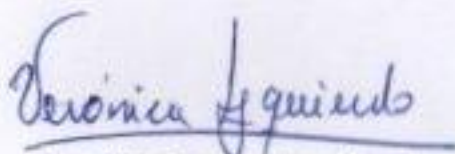 Verónica Izquierdo